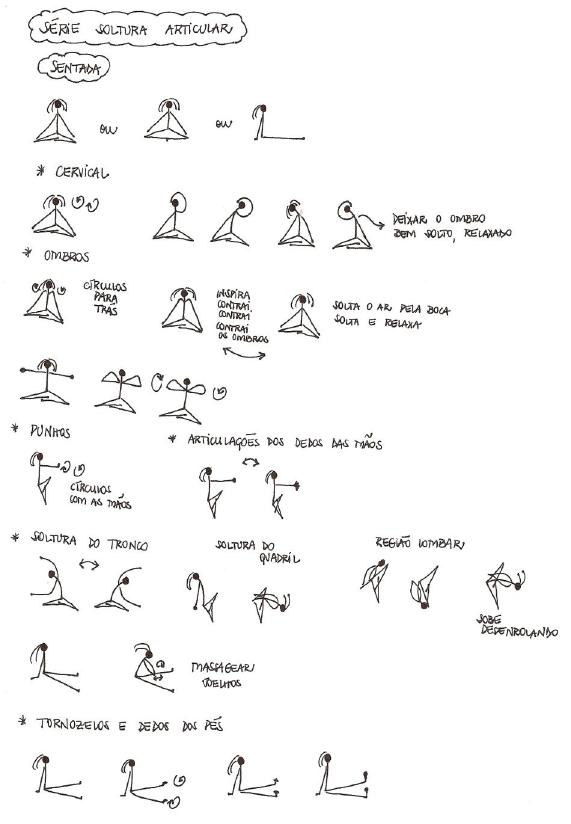 SÉRIE SOLTURA ARTICULAR
SENTADA
OU
OU
* CERVICAL
DEIXAR O OMBRO
BEM SOLTO, RELAXADO
* OMBROS
CÍRCULOS
PARA
TRÁS
INSPIRA
CONTRAI
CONTRAI
CONTRAI
OS OMBROS
SOLTA O AR PELA BOCA
SOLTA E RELAXA
* PUNHOS
* ARTICULAÇÕES DOS DEDOS DAS MÃOS
CÍRCULOS
COM AS MÃOS
* SOLTURA DO TRONCO
SOLTURA DO
QUADRIL
REGIÃO LOMBAR
SOBE
DESENROLANDO
MASSAGEAR
JOELHOS
* TORNOZELOS E DEDOS DOS PÉS